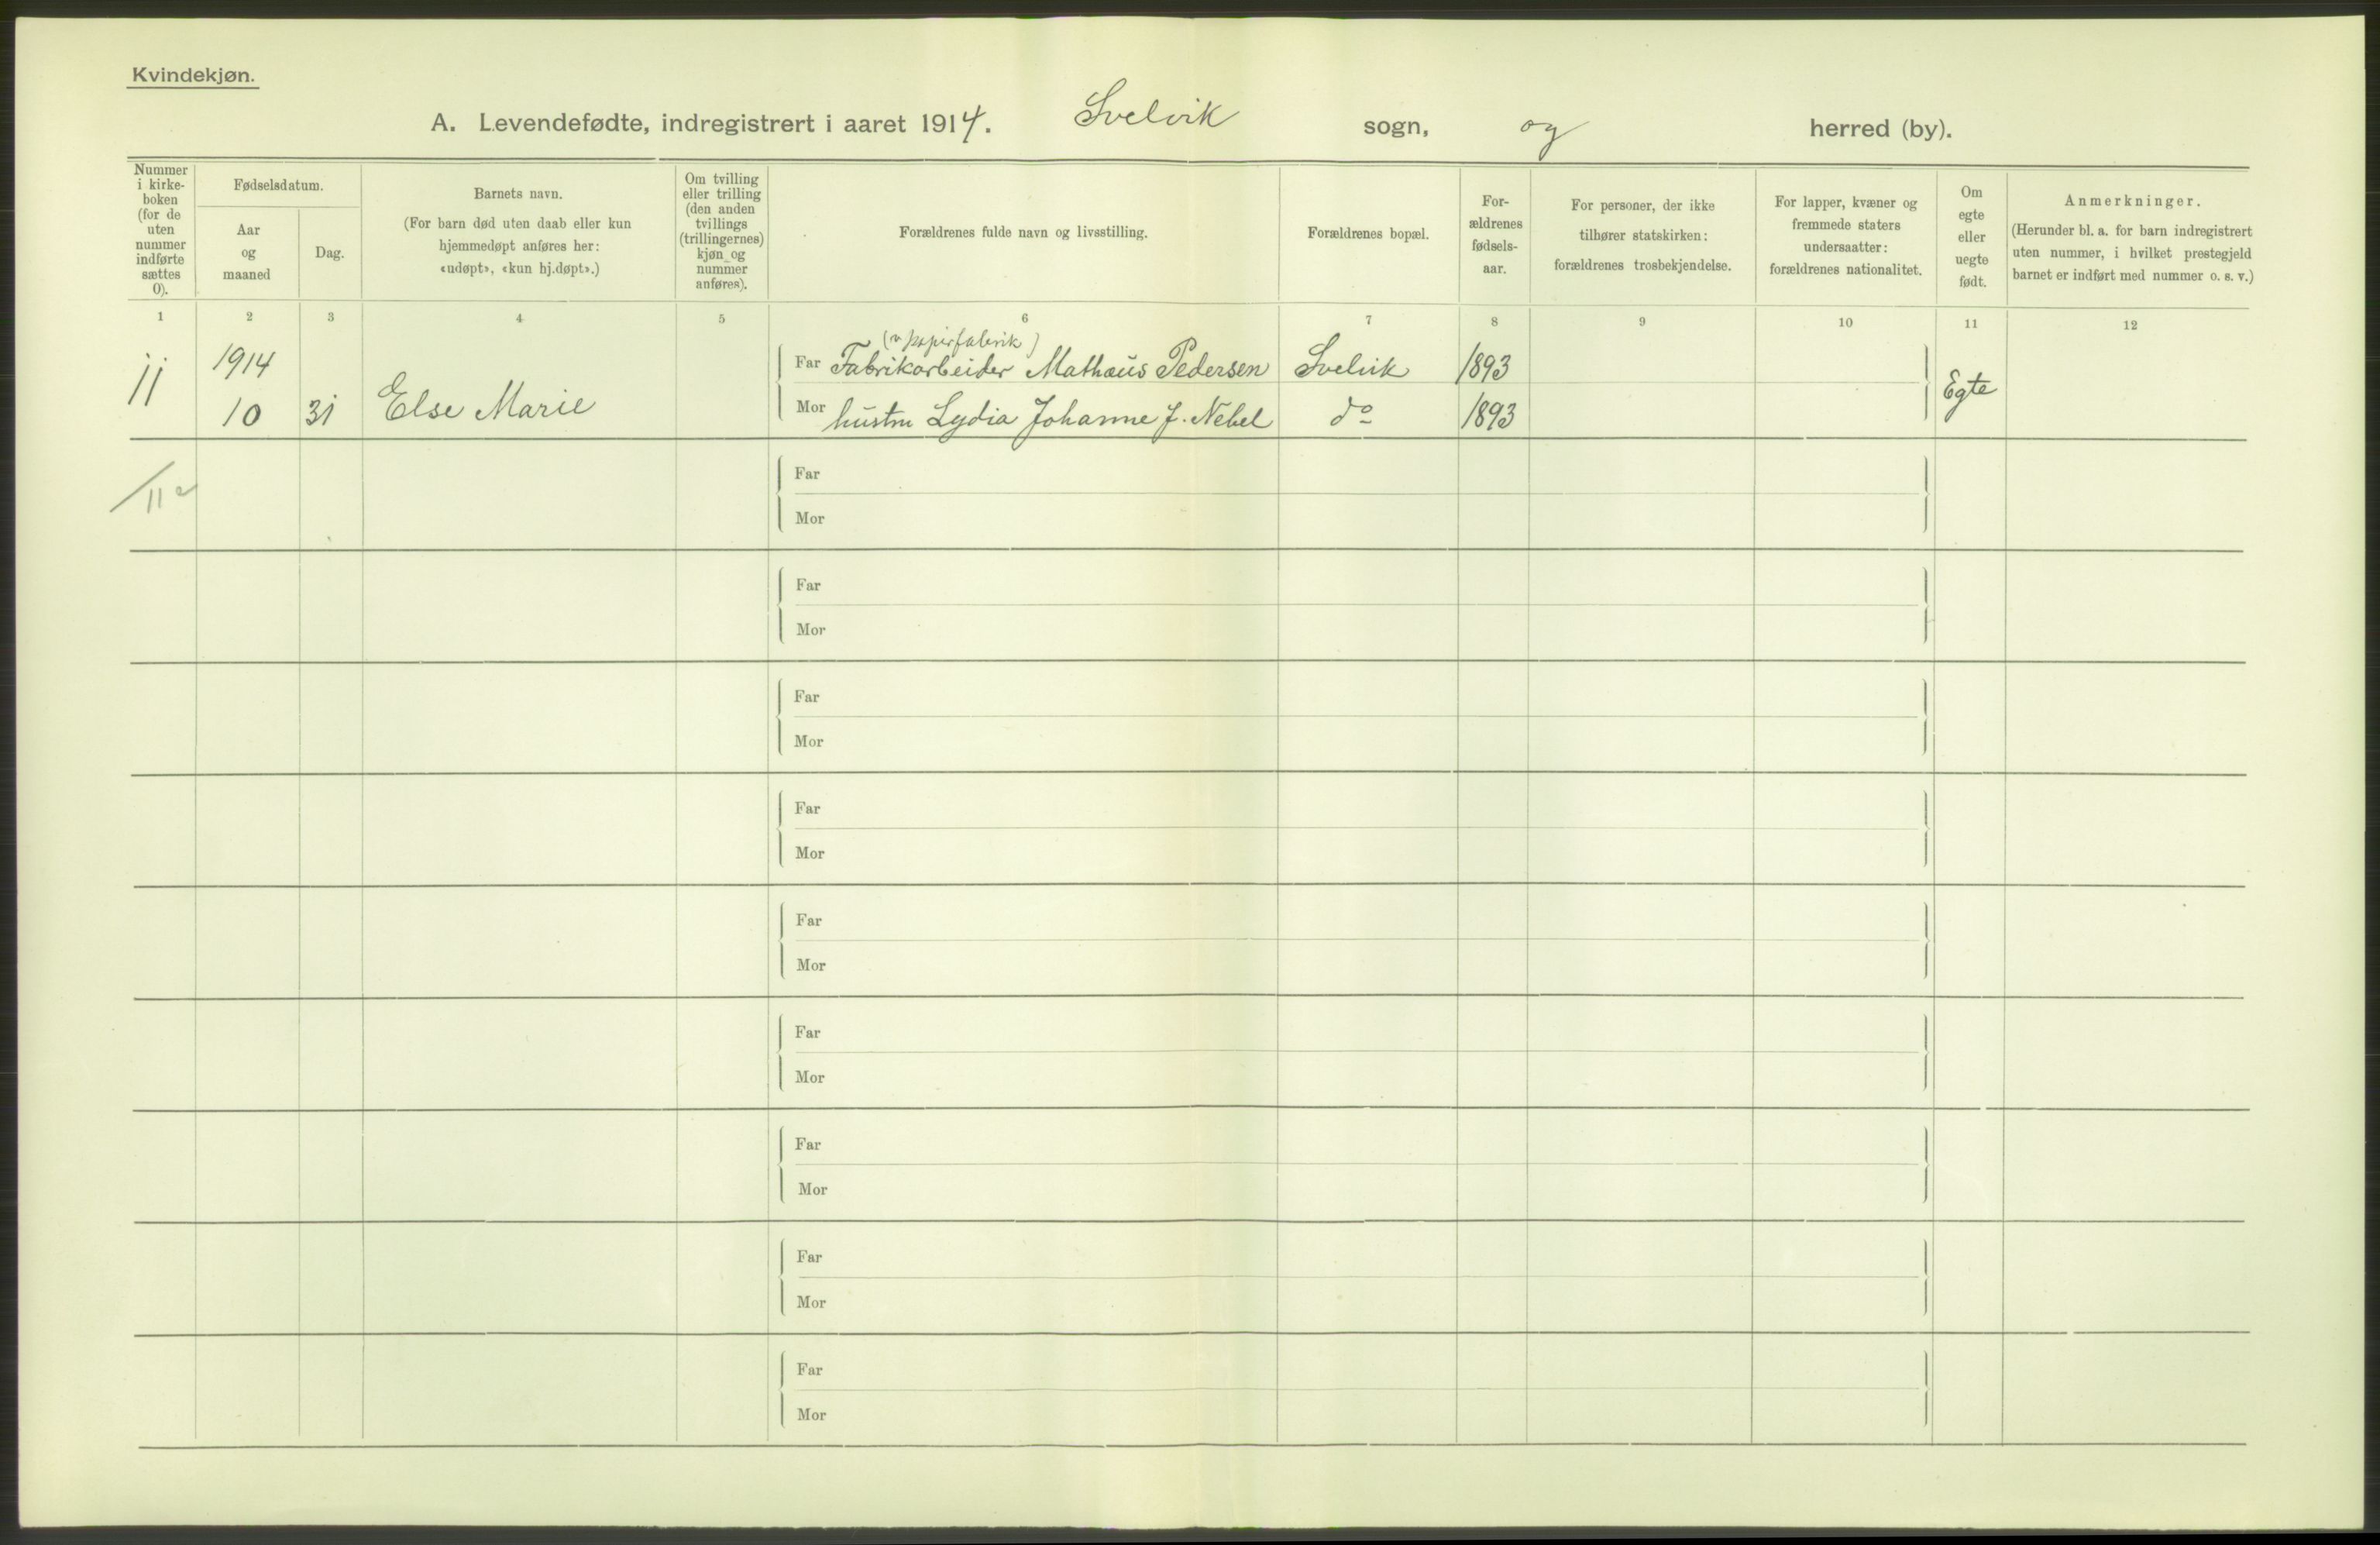 Kvindekjøn.
A. Levendefødte, indregistrert i aaret 1914. Svelvik sogn, og herred (by).
Nummer
i kirke-
boken
(for de
uten
nummer
indførte
sættes
0).
Fødselsdatum.
Aar
og
maaned
Dag.
Barnets navn.
(For barn død uten daab eller kun
hjemmedøpt anføres her:
«udøpt», «kun hj.døpt».)
Om tvilling
eller trilling
(den anden
tvillings
(trillingernes)
kjøn og
nummer
anføres).
Forældrenes fulde navn og livsstilling.
Forældrenes bopæl.
For-
ældrenes
fødsels-
aar.
For personer, der ikke
tilhører statskirken:
forældrenes trosbekjendelse.
For lapper, kvæner og
fremmede staters
undersaatter:
forældrenes nationalitet.
Om
egte
eller
uegte
født.
Anmerkninger.
(Herunder bl. a. for barn indregistrert
uten nummer, i hvilket prestegjeld
barnet er indført med nummer o. s. v.)
1 2 3 4 5 6 7 8 9 10 11 12
(v papirfabrik)
1914 Far Fabrikarbeider Mathæus Pedersen Svelvik 1893
11 10 31 Else Marie Mor hustru Lydia Johanne f. Nebel do 1893 Egte
Far
11
Mor
Far
Mor
Far
Mor
Far
Mor
Far
Mor
Far
Mor
Far
Mor
Far
Mor
Far
Mor